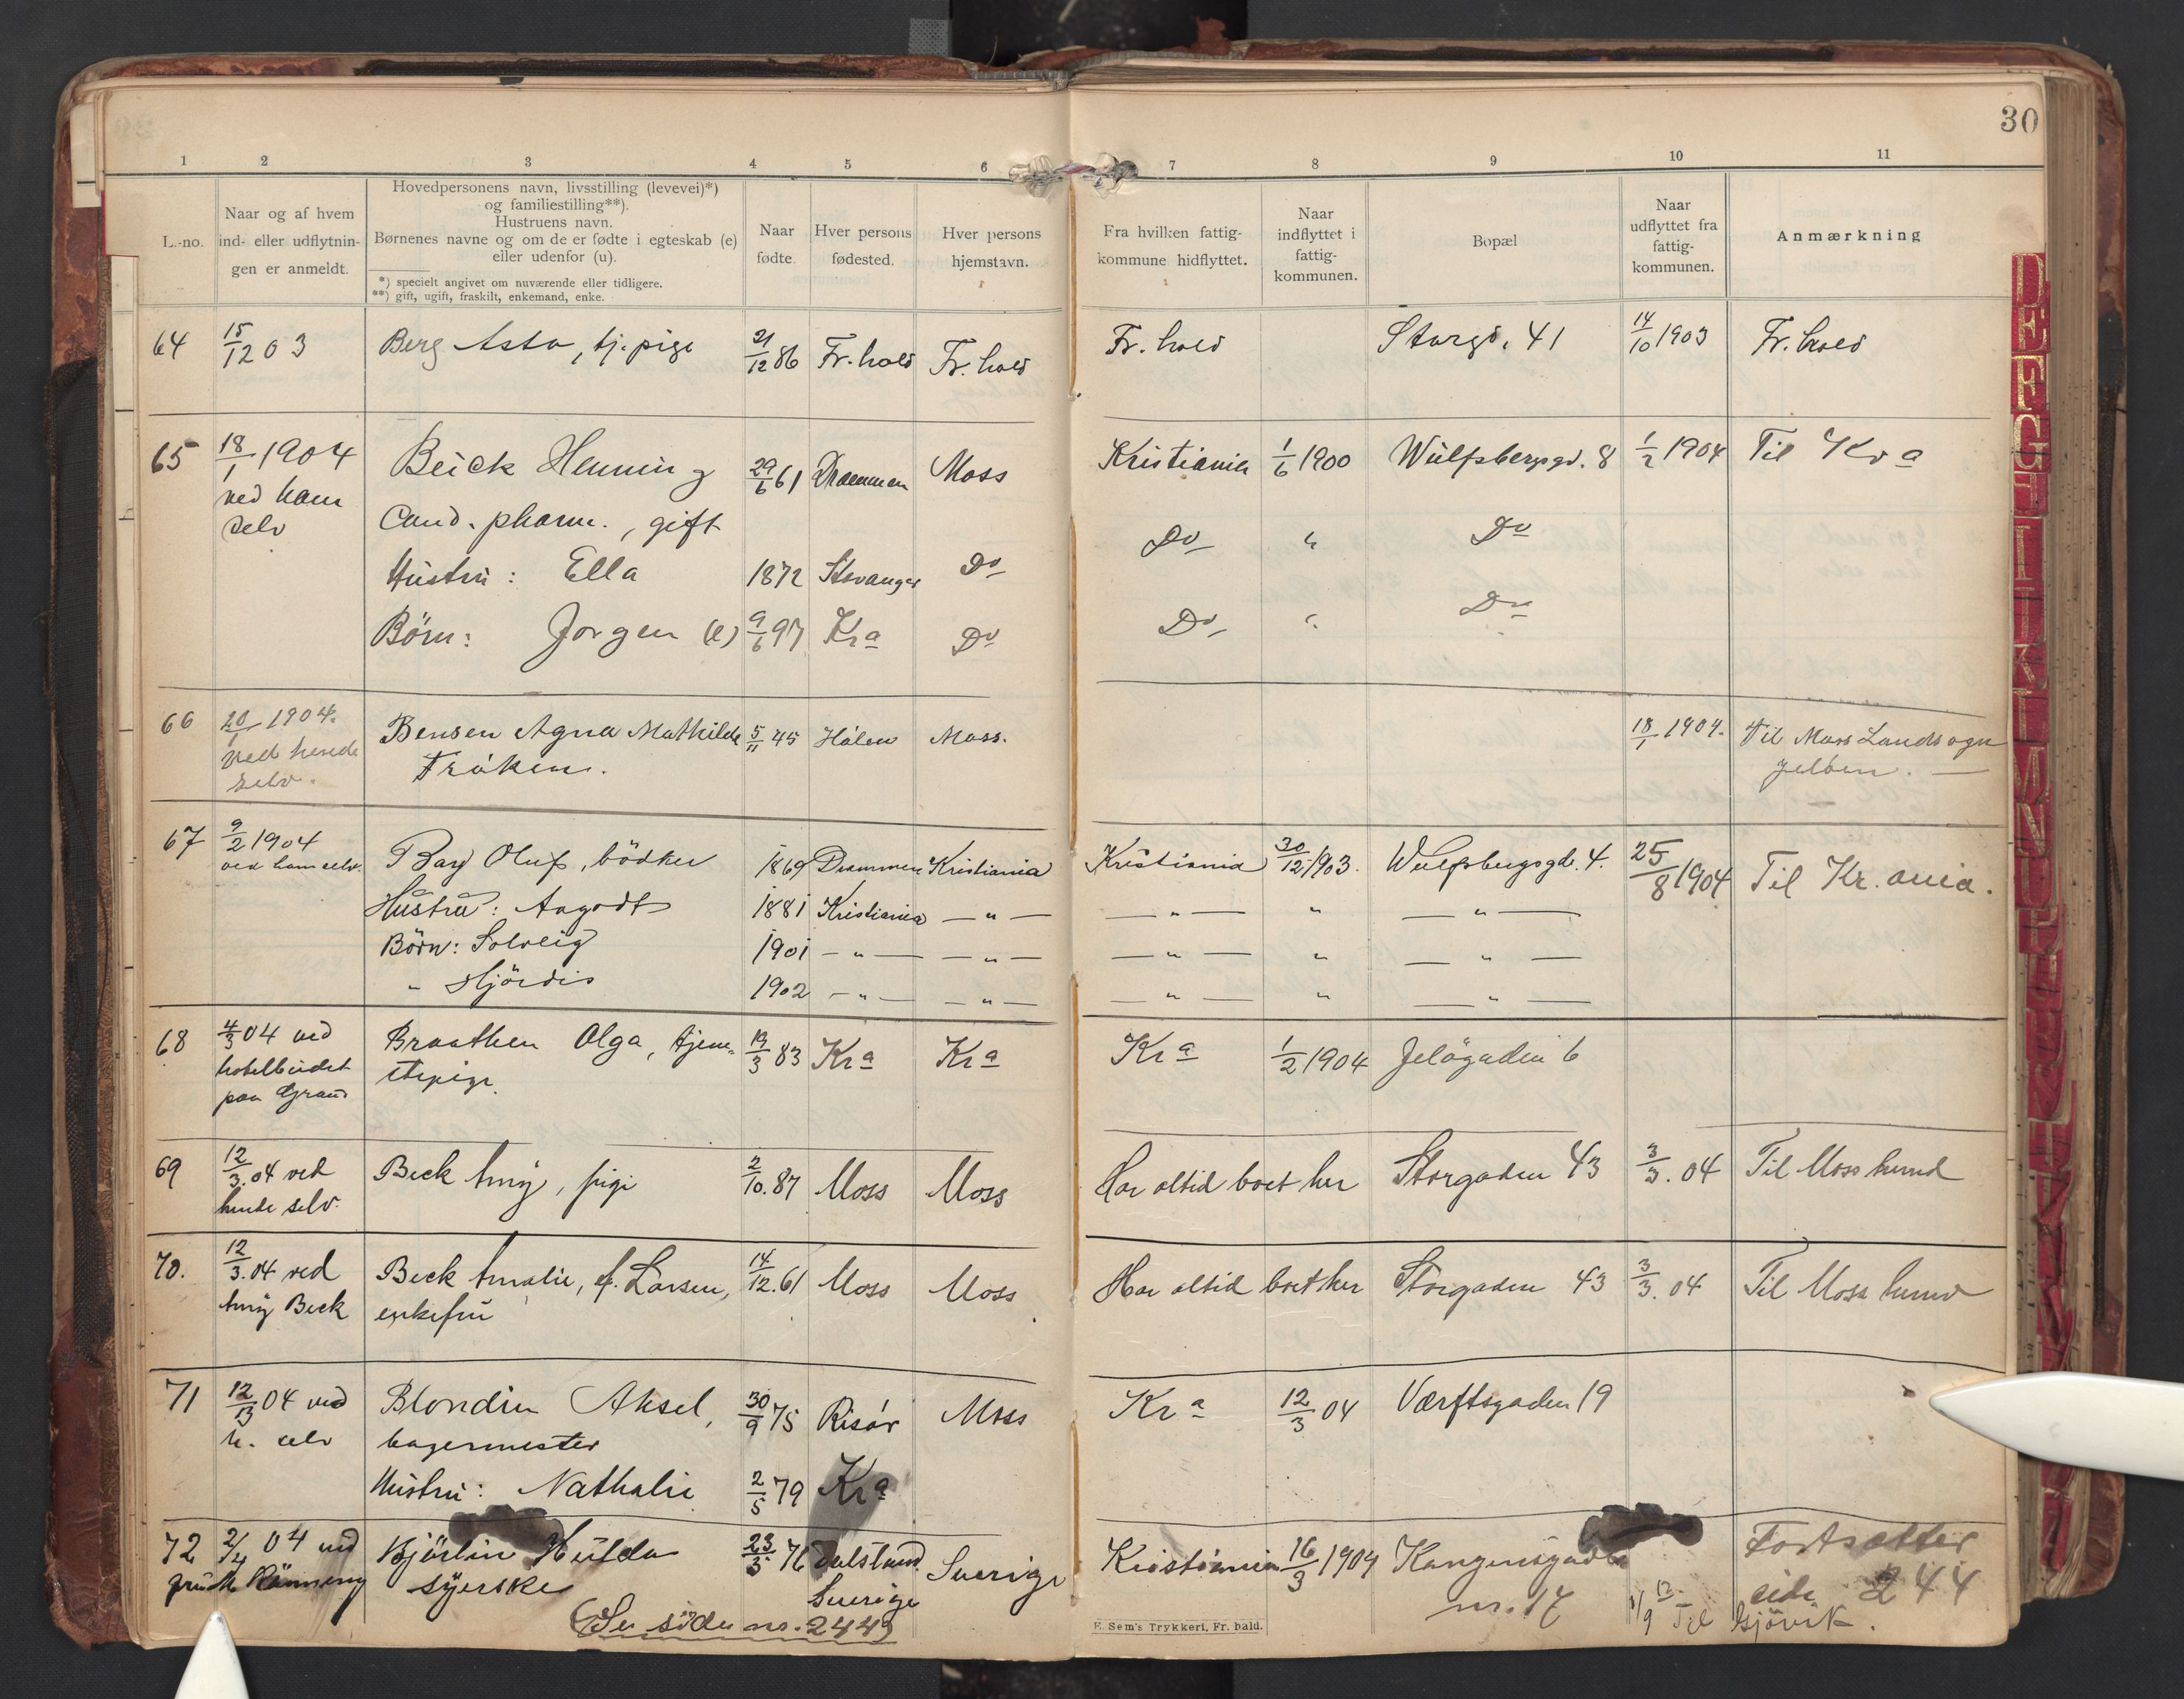 30
1 2 3 4 5 6 7 8 9 10 11
L.-no.
Naar og af hvem
ind- eller udflytnin-
gen er anmeldt.
Hovedpersonens navn, livsstilling (levevei)*)
og familiestilling**).
Hustruens navn.
Børnenes navne og om de er fødte i egteskab (e)
eller udenfor (u).
*) specielt angivet om nuværende eller tidligere.
**) gift, ugift, fraskilt, enkemand, enke.
Naar
fødte.
Hver persons
fødested.
Hver persons
hjemstavn.
Fra hvilken fattig-
kommune hidflyttet.
Naar
indflyttet i
fattig-
kommunen.
Bopæl
Naar
udflyttet fra
fattig-
kommunen.
Anmærkning
64 15/12 03 Berg Asta, tj. pige 21/12 86 Fr.hald Fr.hald Fr.hald Storgd. 41 14/10 1903 Fr.hald
65 18/1 1904 Beick Henning 29/6 61 Drammen Moss Kristiania 1/6 1900 Wulfsbergsgd. 8 1/2 1904 Til Kra
ved ham
selv
Cand. pharm., gift
Hustru: Ella 1872 Stavanger Do Do " Do
Børn: Jørgen (e) 9/6 97 Kra Do Do " Do
66 20/1 1904. Bensen Agna Mathilde 5/11 45 Hølen Moss. 18/1 1904. Til Moss Landsogn
ved hende
selv.
Frøken.
Jeløen. —
67 9/2 1904 Berg Oluf, bødker 1869 Drammen Kristiania Kristiania 30/12 1903. Wulfsbergsgd. 4. 25/8 1904 Til Kr.ania.
ved ham selv.
Hustru: Aagodt 1881 Kristiania — " — — " — " — " —
Børn: Solveig 1901 — " — — " — — " — " — " —
" Hjørdis 1902 — " — — " — — " — " — " —
68 4/3 04 ved Braathen Olga, tjene- 19/3 83 Kra Kra Kra 1/2 1904 Jeløgaden 6
hotelbudet
paa Grand
stepige.
69 12/3. 04 ved Beck Amy, pige 2/10. 87 Moss Moss Har altid boet her Storgaden 43 3/3. 04 Til Moss herred
hende selv.
70. 12/3. 04 ved Beck Amalie, f. Larsen, 14/12. 61 Moss Moss Har altid boet her Storgaden 43 3/3. 04 Til Moss herred
Amy Beck enkefru
71 12/3 04 ved Blondin Aksel, 30/9 75 Risør Moss Kra 12/3 04 Værftsgaden 19
h. selv bagermester
Hustru: Nathalie 2/5 79 Kra
72 2/4 04 ved Bjørlin Hulda 23/3 76 Dalsland Sverige Kristiania 16/3 1904 Kongensgade Fortsætter
fru Rønning syerske Sverige nr. 17 side 244
(Se side no. 244) 1/9 12 Til Gjøvik.
E. Sem's Trykkeri, Fr. hald.
D
E
F
G
H
I
J
K
L
M
N